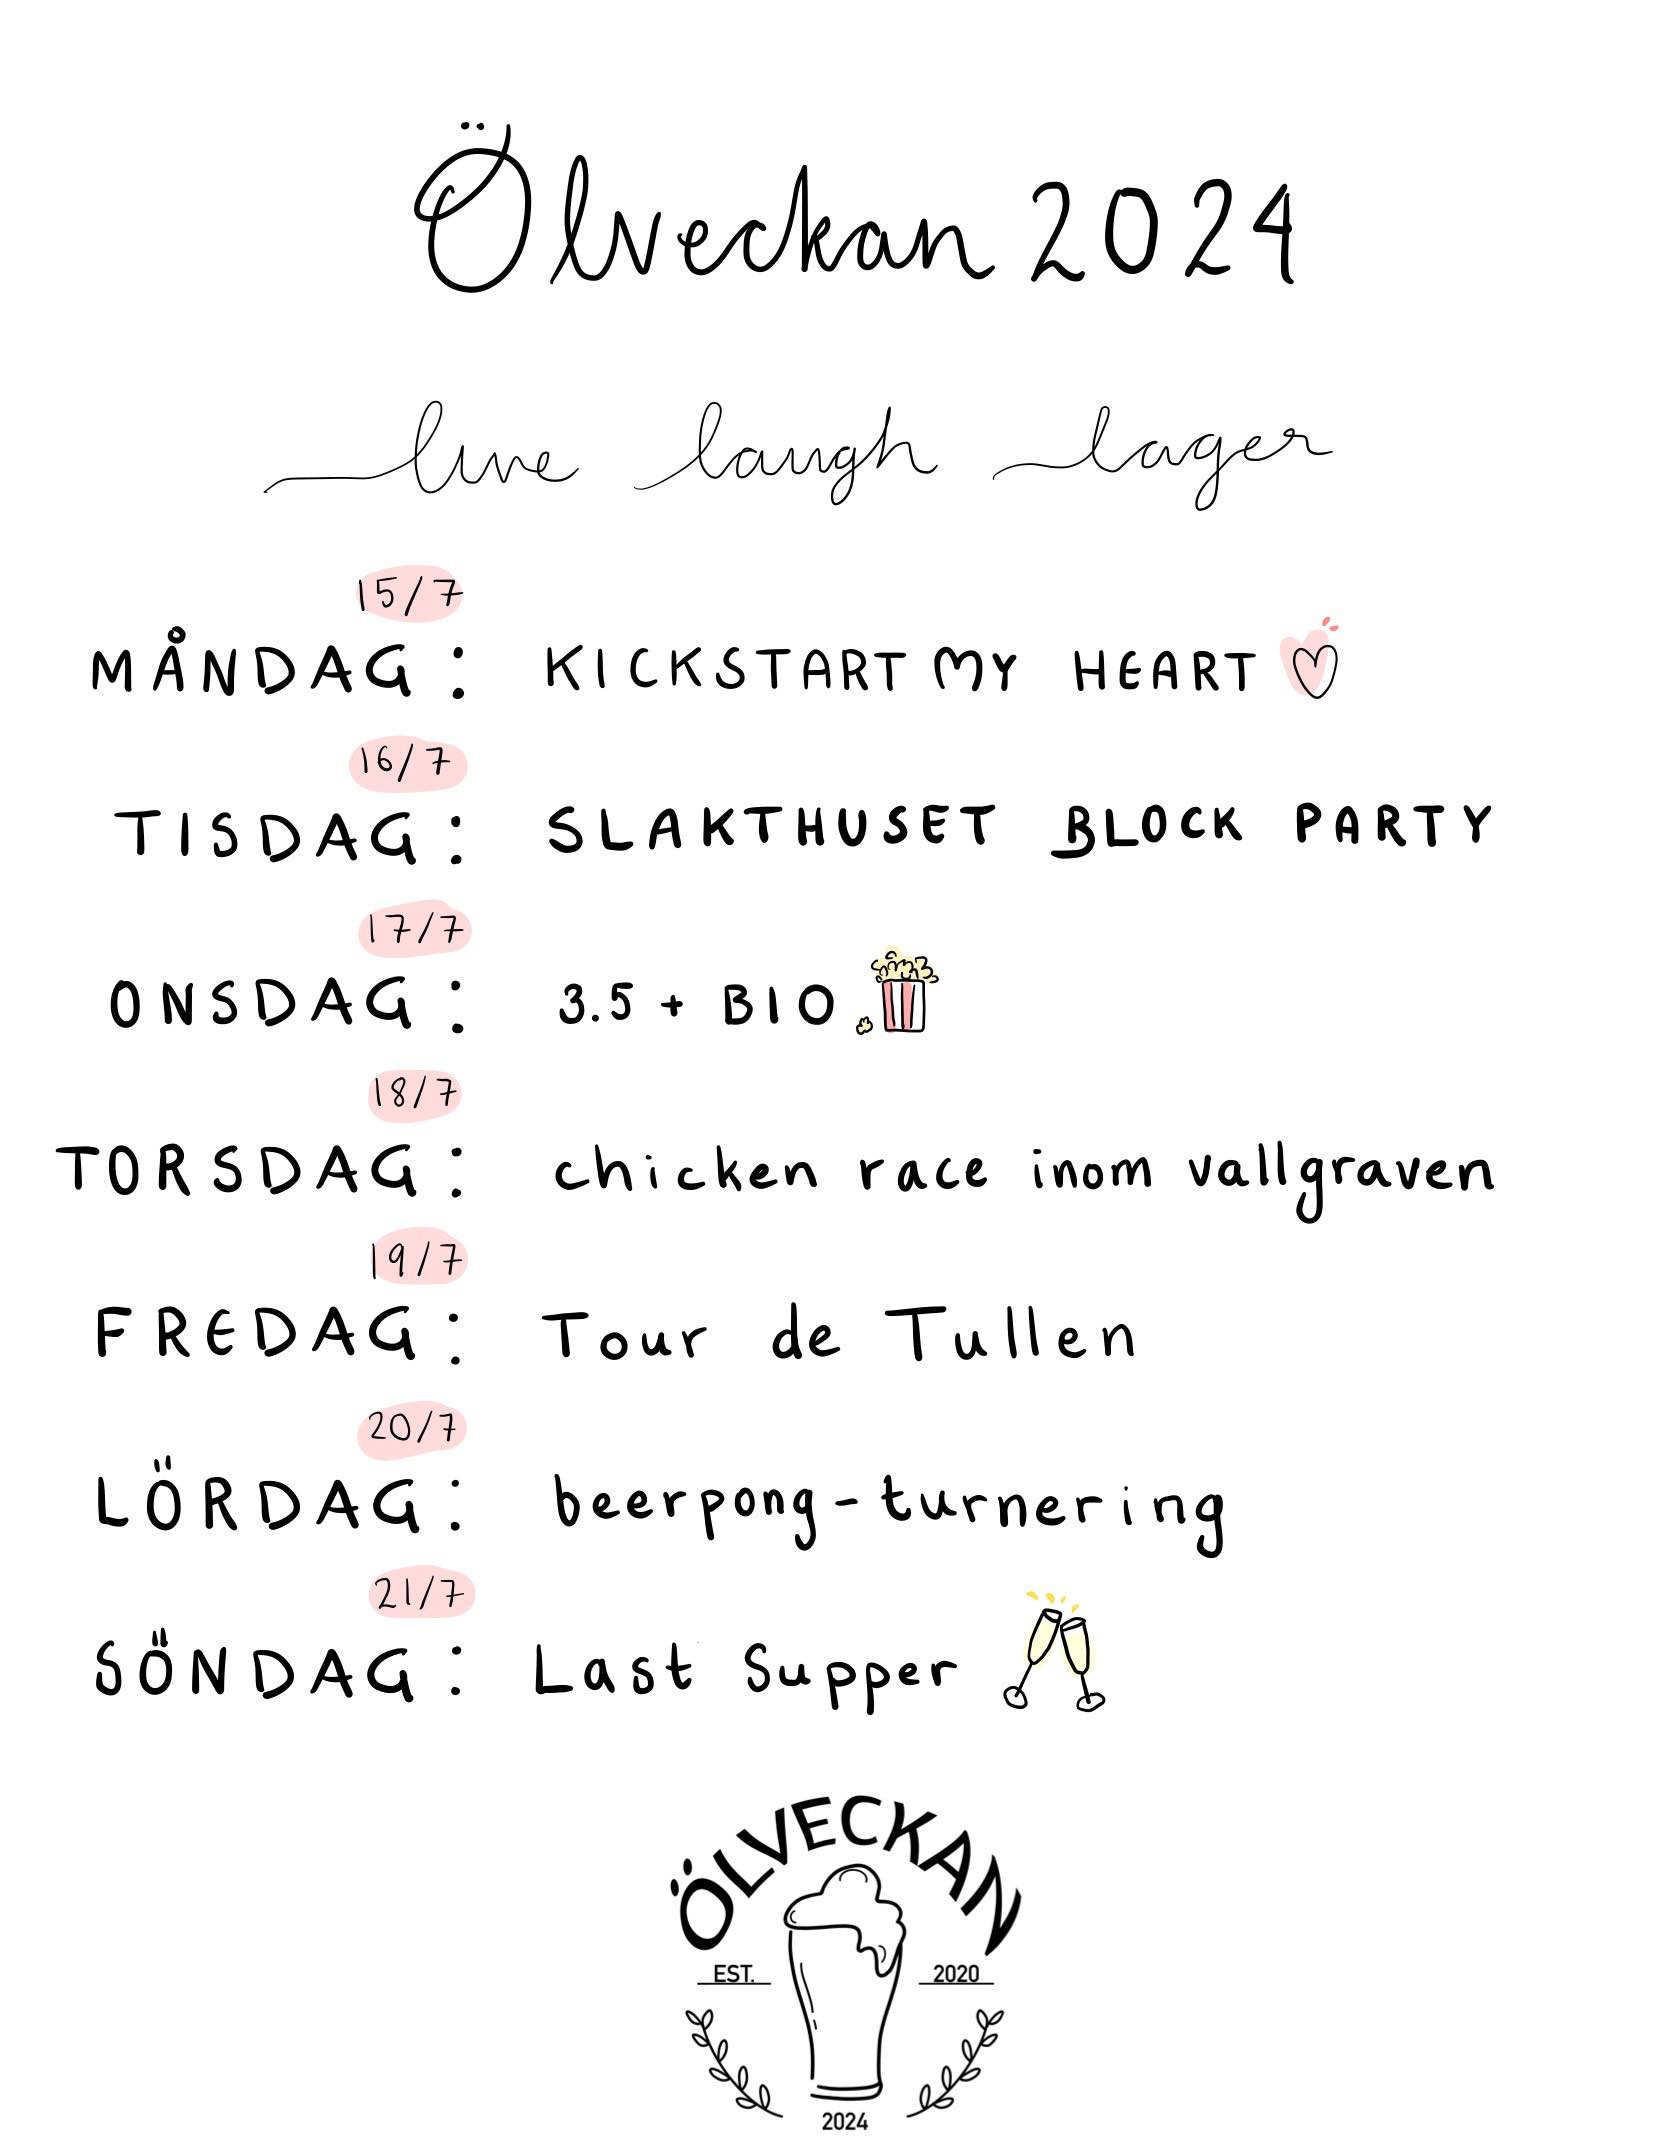 Ölveckan 2024
live laugh lager
15/7
MÅNDAG: KICKSTART MY HEART
16/7
TISDAG: SLAKTHUSET BLOCK PARTY
17/7
ONSDAG: 3.5 + BIO
18/7
TORSDAG: chicken race inom vallgraven
19/7
FREDAG: Tour de Tullen
20/7
LÖRDAG: beerpong-turnering
21/7
SÖNDAG: Last Supper
ÖLVECKAN
EST. 2020
2024